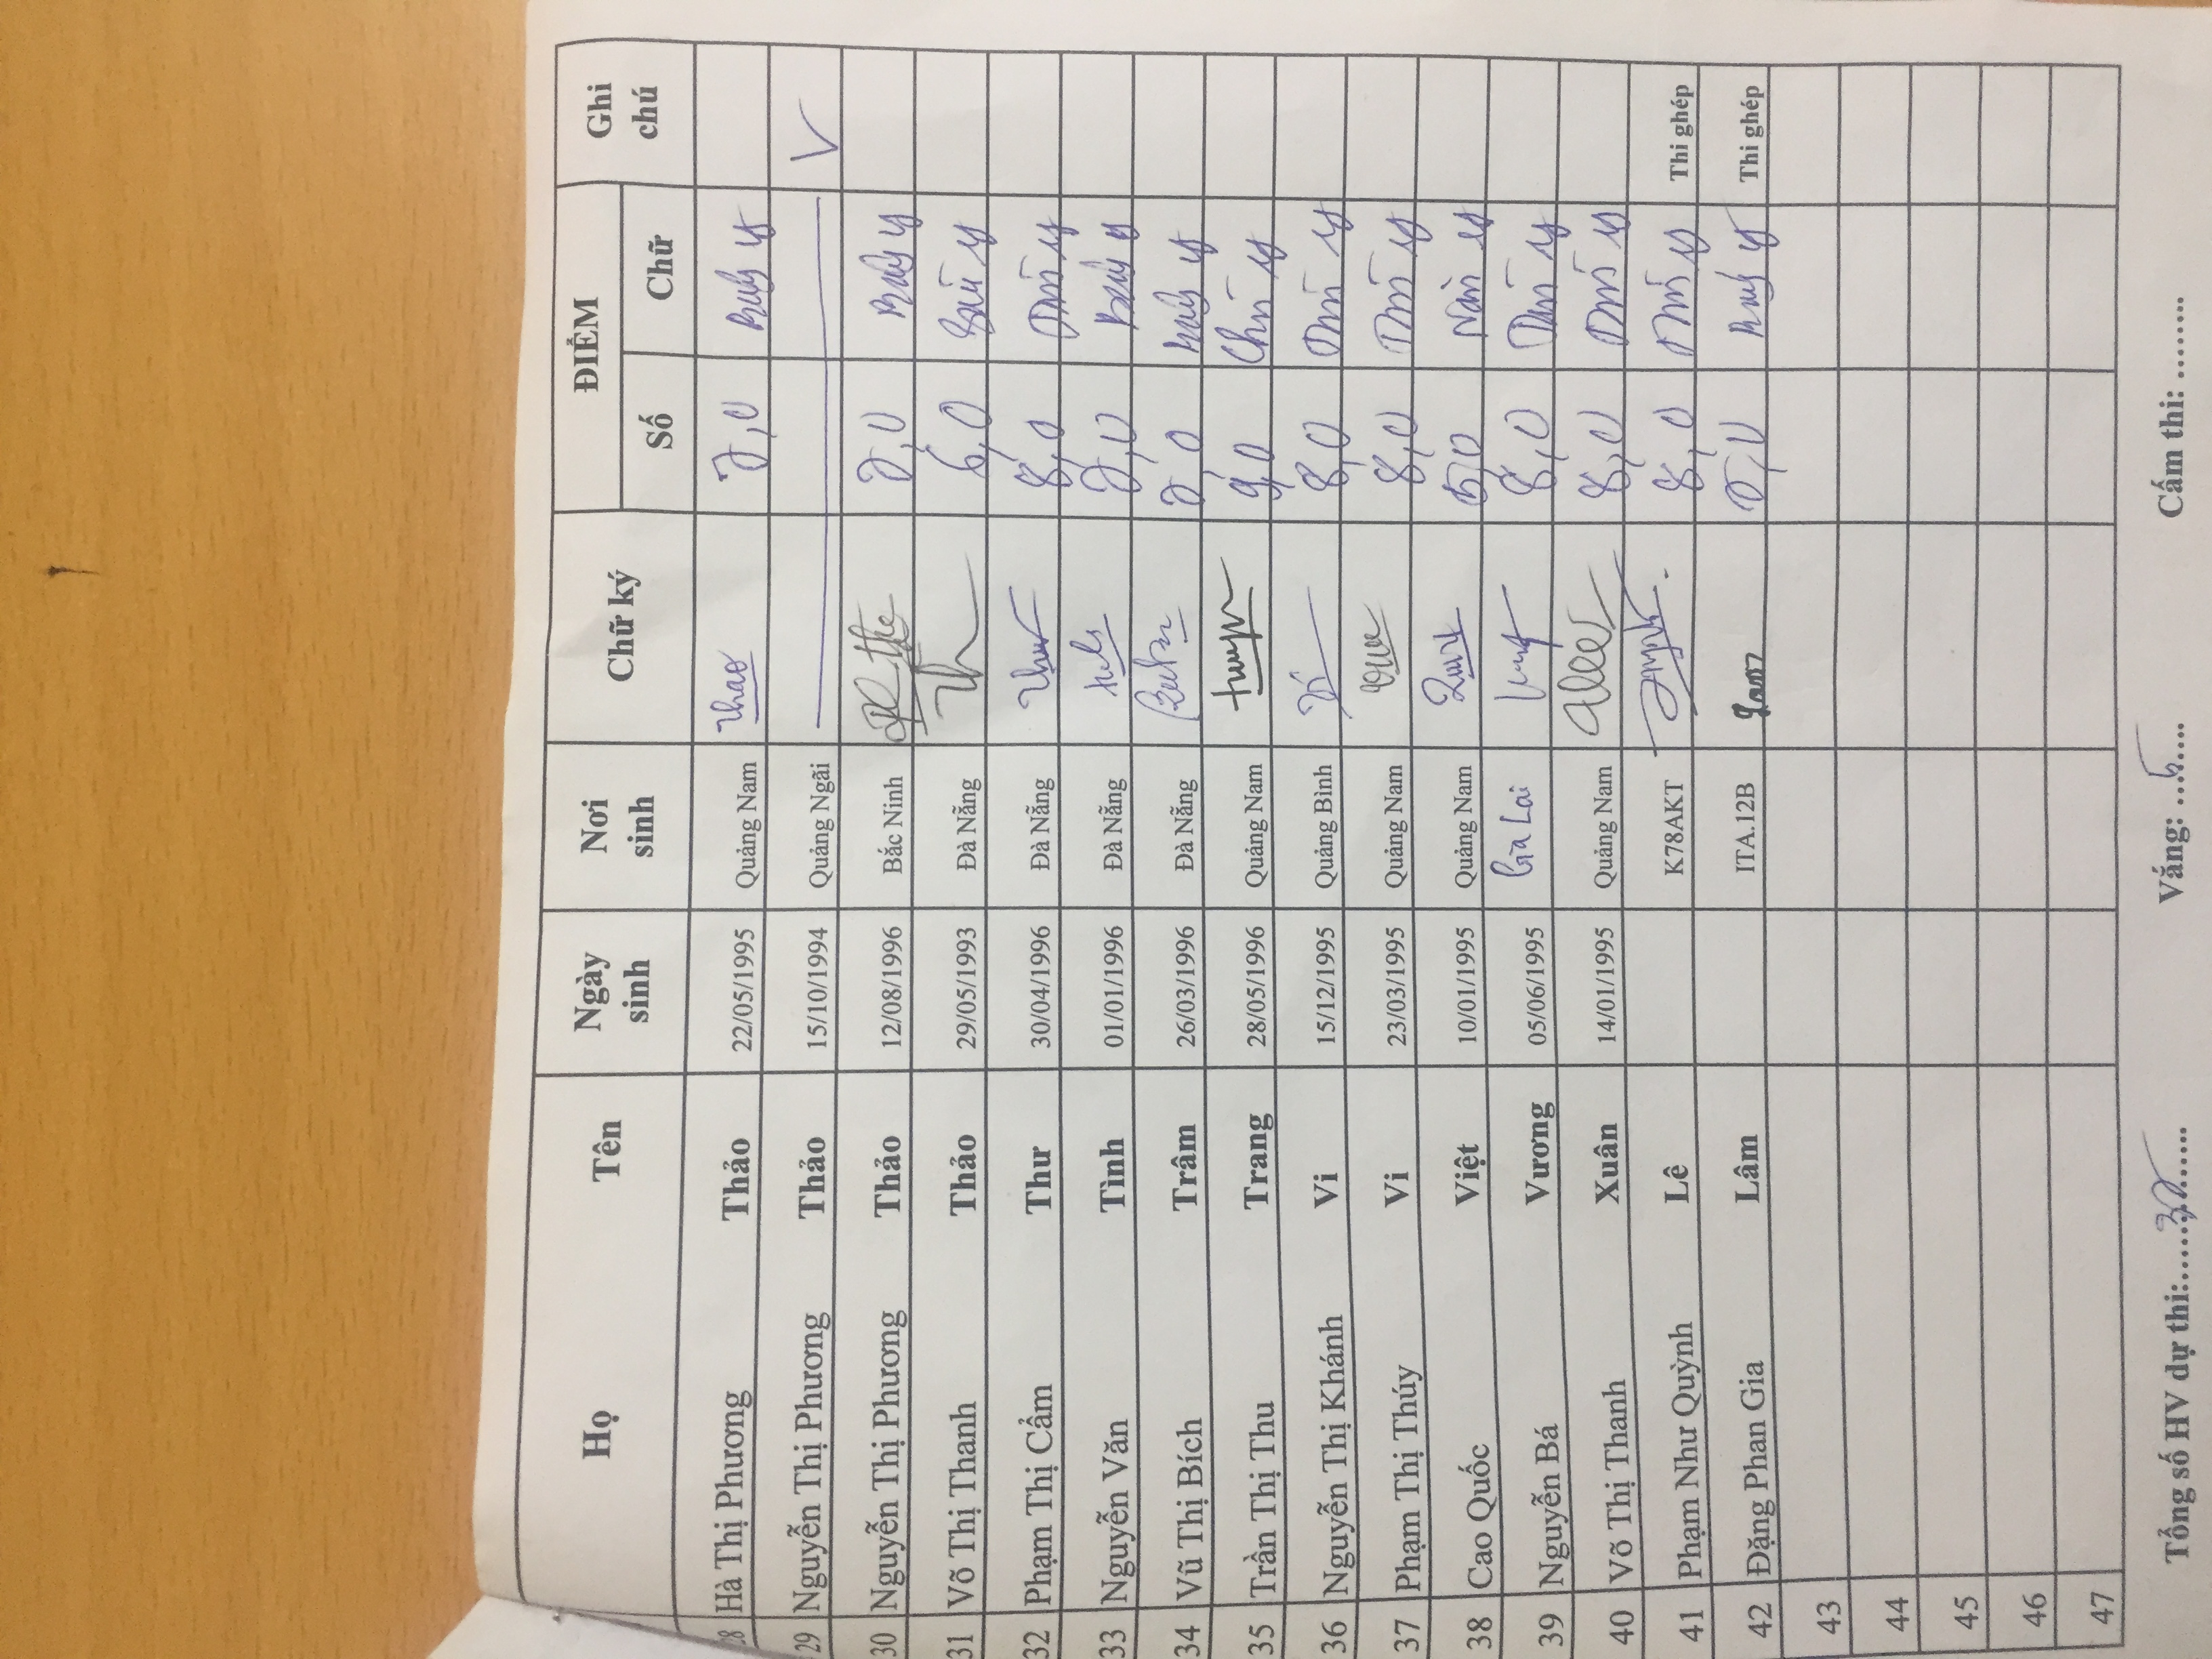 Họ Tên Ngày sinh Nơi sinh Chữ ký ĐIỂM Ghi chú
Số Chữ
28 Hà Thị Phương Thảo 22/05/1995 Quảng Nam Thao 7,0 Bảy
29 Nguyễn Thị Phương Thảo 15/10/1994 Quảng Ngãi V
30 Nguyễn Thị Phương Thảo 12/08/1996 Bắc Ninh 7,0 Bảy
31 Võ Thị Thanh Thảo 29/05/1993 Đà Nẵng Th 6,0 Sáu
32 Phạm Thị Cẩm Thư 30/04/1996 Đà Nẵng Thư 8,0 Tám
33 Nguyễn Văn Tình 01/01/1996 Đà Nẵng 7,0 Bảy
34 Vũ Thị Bích Trâm 26/03/1996 Đà Nẵng 7,0 Bảy
35 Trần Thị Thu Trang 28/05/1996 Quảng Nam 9,0 Chín
36 Nguyễn Thị Khánh Vi 15/12/1995 Quảng Bình 8,0 Tám
37 Phạm Thị Thúy Vi 23/03/1995 Quảng Nam 8,0 Tám
38 Cao Quốc Việt 10/01/1995 Quảng Nam 5,0 Năm
39 Nguyễn Bá Vương 05/06/1995 Gia Lai 8,0 Tám
40 Võ Thị Thanh Xuân 14/01/1995 Quảng Nam 8,0 Tám
41 Phạm Như Quỳnh Lê K78AKT 8,0 Tám Thi ghép
42 Đặng Phan Gia Lâm ITA.12B Lam 7,0 Bảy Thi ghép
43
44
45
46
47
Tổng số HV dự thi:............ Vắng: ........ Cấm thi: ........